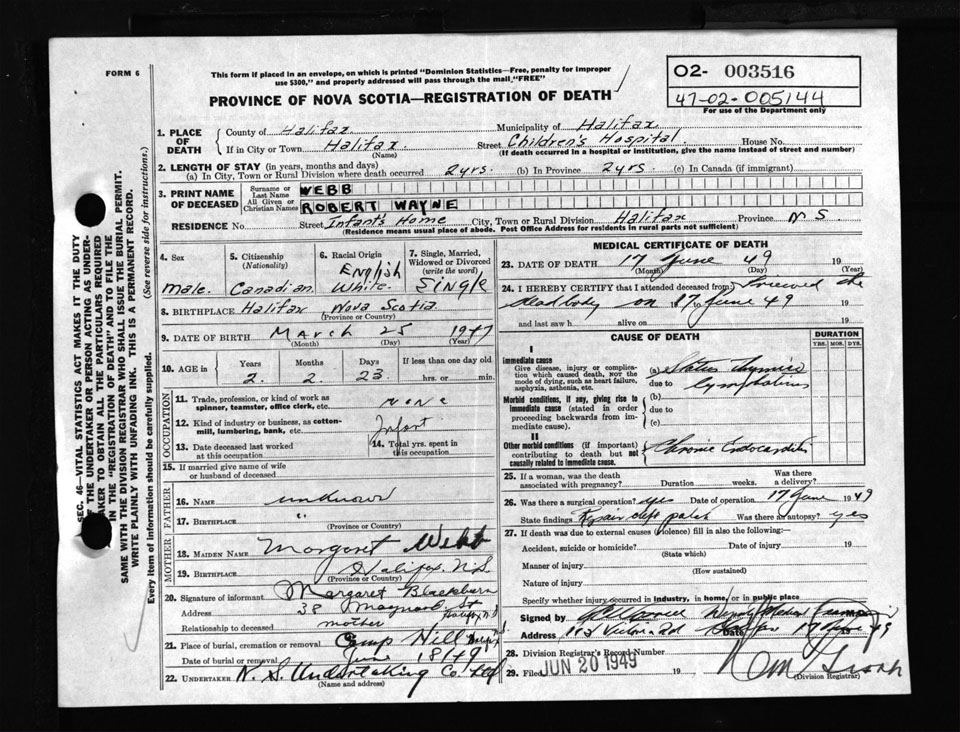 FORM 6
This form if placed in an envelope, on which is printed "Dominion Statistics—Free, penalty for improper
use $300," and properly addressed will pass through the mail "FREE"
PROVINCE OF NOVA SCOTIA—REGISTRATION OF DEATH
02- 003516
47-02-005144
For use of the Department only
SEC. 46—VITAL STATISTICS ACT MAKES IT THE DUTY
OF THE UNDERTAKER OR PERSON ACTING AS UNDER-
TAKER TO OBTAIN ALL THE PARTICULARS REQUIRED
IN THE "REGISTRATION OF DEATH" AND TO FILE THE
SAME WITH THE DIVISION REGISTRAR WHO SHALL ISSUE THE BURIAL PERMIT.
WRITE PLAINLY WITH UNFADING INK. THIS IS A PERMANENT RECORD.
Every item of information should be carefully supplied. (See reverse side for instructions.)
1. PLACE OF DEATH
County of Halifax. Municipality of Halifax.
If in City or Town Halifax. Street Children's Hospital. House No.
(Name) (If death occurred in a hospital or institution, give the name instead of street and number)
2. LENGTH OF STAY (in years, months and days)
(a) In City, Town or Rural Division where death occurred 2 yrs. (b) In Province 2 yrs. (c) In Canada (if immigrant)
3. PRINT NAME OF DECEASED
Surname or Last Name WEBB
All Given or Christian Names ROBERT WAYNE
RESIDENCE No. Street Infant's Home City, Town or Rural Division Halifax Province N S.
(Residence means usual place of abode. Post Office Address for residents in rural parts not sufficient)
4. Sex Male.
5. Citizenship (Nationality) Canadian
6. Racial Origin English White.
7. Single, Married, Widowed or Divorced (write the word) Single
8. BIRTHPLACE Halifax Nova Scotia.
(Province or Country)
9. DATE OF BIRTH March 25 1947
(Month) (Day) (Year)
10. AGE in Years Months Days If less than one day old
2. 2. 23 hrs. or min.
OCCUPATION
11. Trade, profession, or kind of work as
spinner, teamster, office clerk, etc. none
12. Kind of industry or business, as cotton-
mill, lumbering, bank, etc. Infant
13. Date deceased last worked
at this occupation
14. Total yrs. spent in
this occupation
15. If married give name of wife
or husband of deceased
FATHER
16. NAME unknown
17. BIRTHPLACE "
(Province or Country)
MOTHER
18. MAIDEN NAME Margaret Webb
19. BIRTHPLACE Halifax, N.S.
(Province or Country)
20. Signature of informant Margaret Blackburn
Address 38 Maynard St Halifax N.S
Relationship to deceased mother
21. Place of burial, cremation or removal Camp Hill
Date of burial or removal June 18/49
22. UNDERTAKER N. S. Undertaking Co. Ltd
(Name and address)
MEDICAL CERTIFICATE OF DEATH
23. DATE OF DEATH 17 June 49 19
(Month) (Day) (Year)
24. I HEREBY CERTIFY that I attended deceased from I viewed the
dead body on 17 June 49 19
and last saw h alive on 19
CAUSE OF DEATH
DURATION
YRS. MOS. DYS.
I
Immediate cause
Give disease, injury or complica-
tion which caused death, NOT the
mode of dying, such as heart failure,
asphyxia, asthenia, etc.
(a) Status thymico
due to lymphaticus
Morbid conditions, if any, giving rise to
immediate cause (stated in order
proceeding backwards from im-
mediate cause).
(b)
due to
(c)
II
Other morbid conditions (if important)
contributing to death but not
causally related to immediate cause.
Chronic Endocarditis
25. If a woman, was the death
associated with pregnancy? Duration weeks. Was there
a delivery?
26. Was there a surgical operation? yes Date of operation 17 June 1949
State findings Repair cleft palate Was there autopsy? yes
27. If death was due to external causes (violence) fill in also the following:
Accident, suicide or homicide? Date of injury 19
(State which)
Manner of injury
(How sustained)
Nature of injury
Specify whether injury occurred in industry, in home, or in public place
Signed by Medical Examiner
Address 112 Victoria Rd Date 17 June 1949
28. Division Registrar's Record Number
29. Filed JUN 20 1949 19
(Division Registrar)